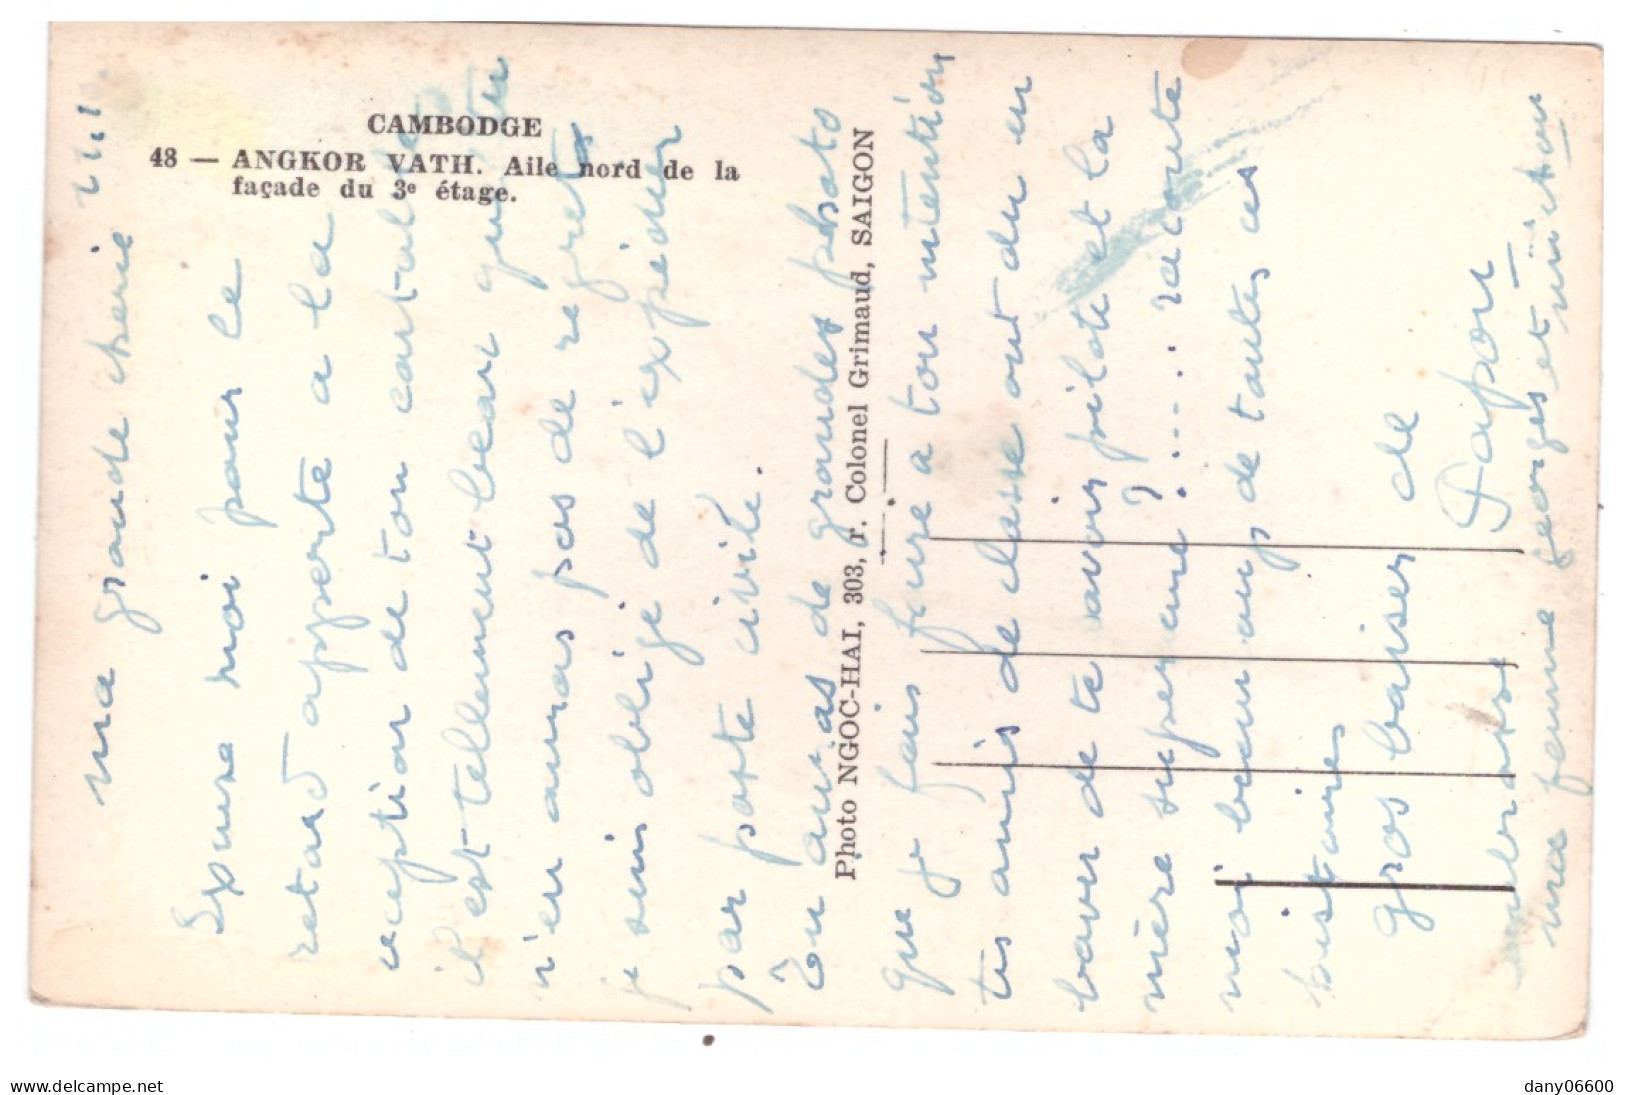 CAMBODGE
48 — ANGKOR VATH. Aile nord de la
façade du 3e étage.
Photo NGOC-HAI, 303, r. Colonel Grimaud, SAIGON
ma grande cherie
Excuse moi pour le
retard apporté a la
reception de ton cartable
il est tellement beau que tu
n'en auras pas de regrets
je suis obligé de l'expédier
par poste civile.
Tu auras de grandes photos
que je fais faire a ton intention
tes amis de classe ont du en
baver de te savoir pilote et la
mère superieure? .... raconte
moi beaucoup de toutes ces
histoires
gros baiser de
Papou
embrasse
ma femme georges et
www.delcampe.net
dany06600